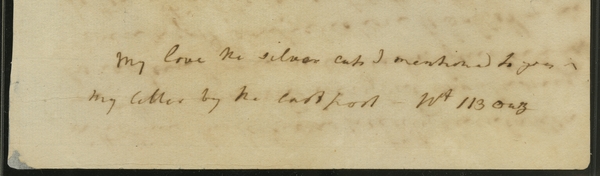 My love the silver cups I mentioned to you in
my letter by the last post – Wt 113 ouz